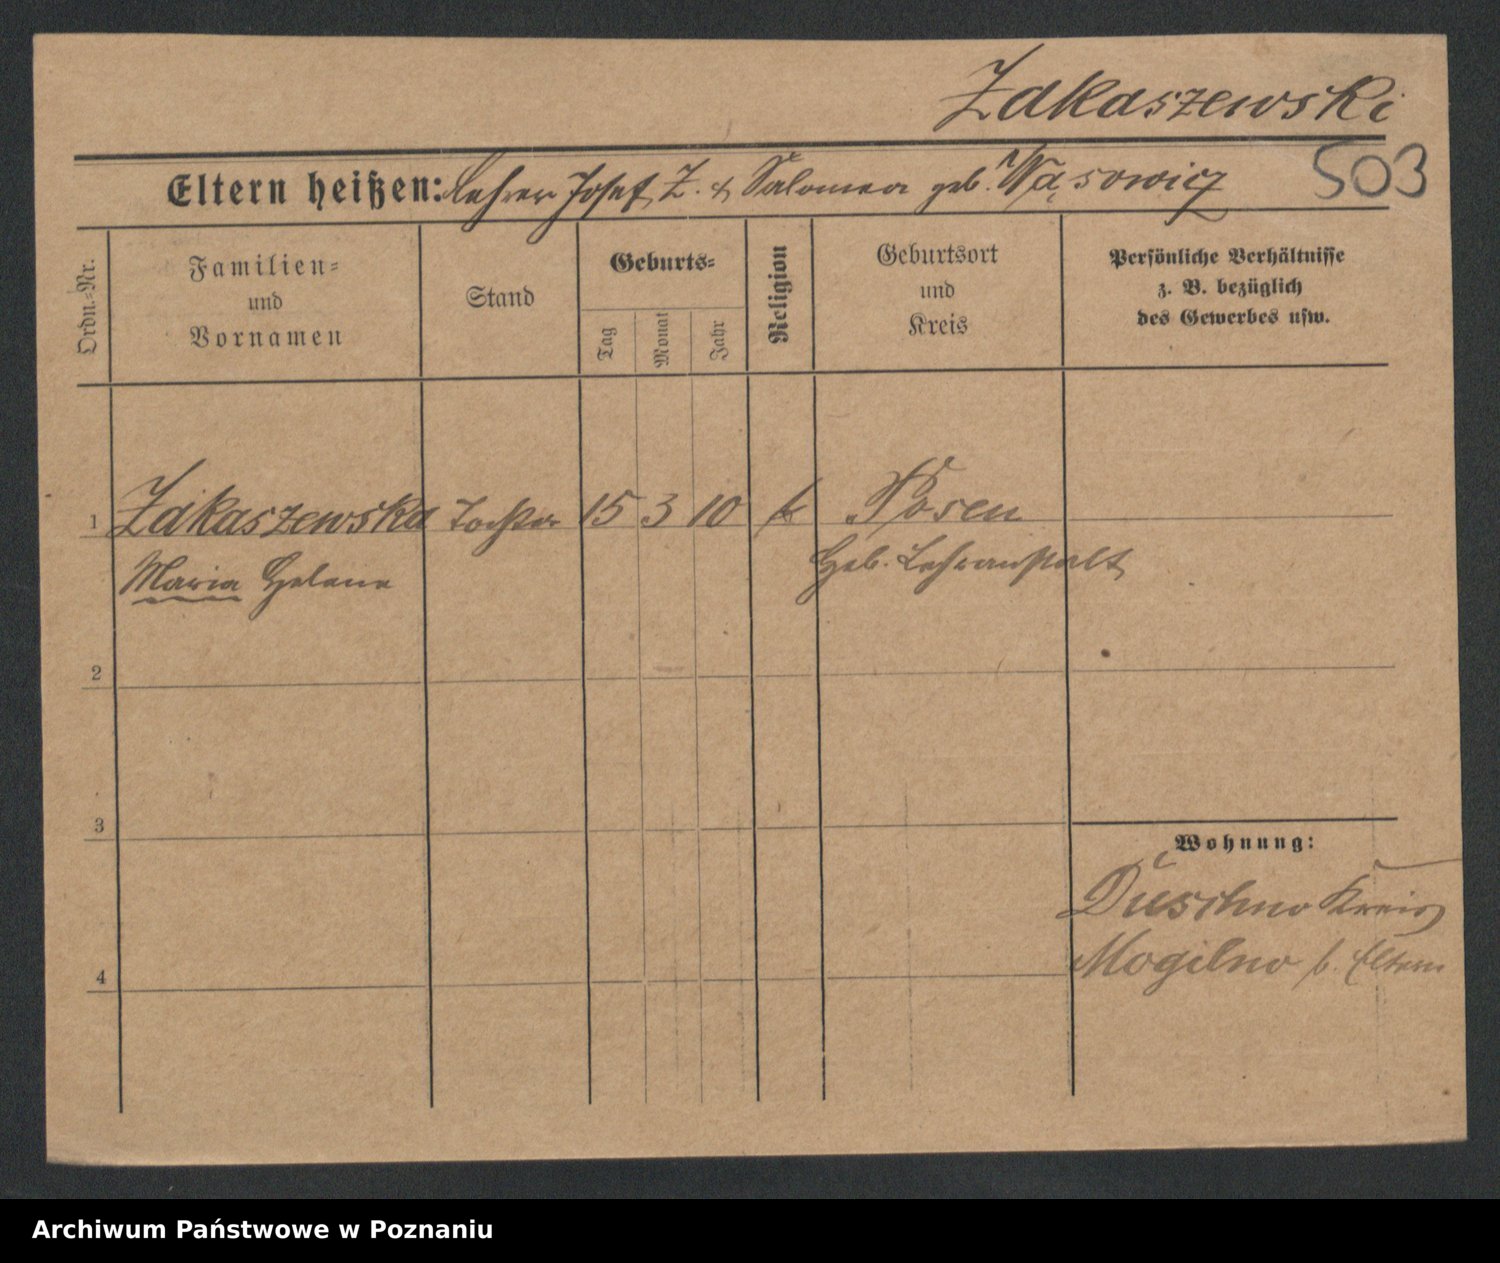 Zakaszewski
503
Eltern heißen: Lehrer Josef Z. & Salomea geb. Wąsowicz
Ordn.-Nr.
Familien-
und
Vornamen
Stand
Geburts-
Tag
Monat
Jahr
Religion
Geburtsort
und
Kreis
Persönliche Verhältnisse
z. B. bezüglich
des Gewerbes usw.
1 Zakaszewska Tochter 15 3 10 k Posen
Maria Helene
Heb. Lehranstalt
2
3
4
Wohnung:
Duschno Kreis
Mogilno b. Eltern
Archiwum Państwowe w Poznaniu